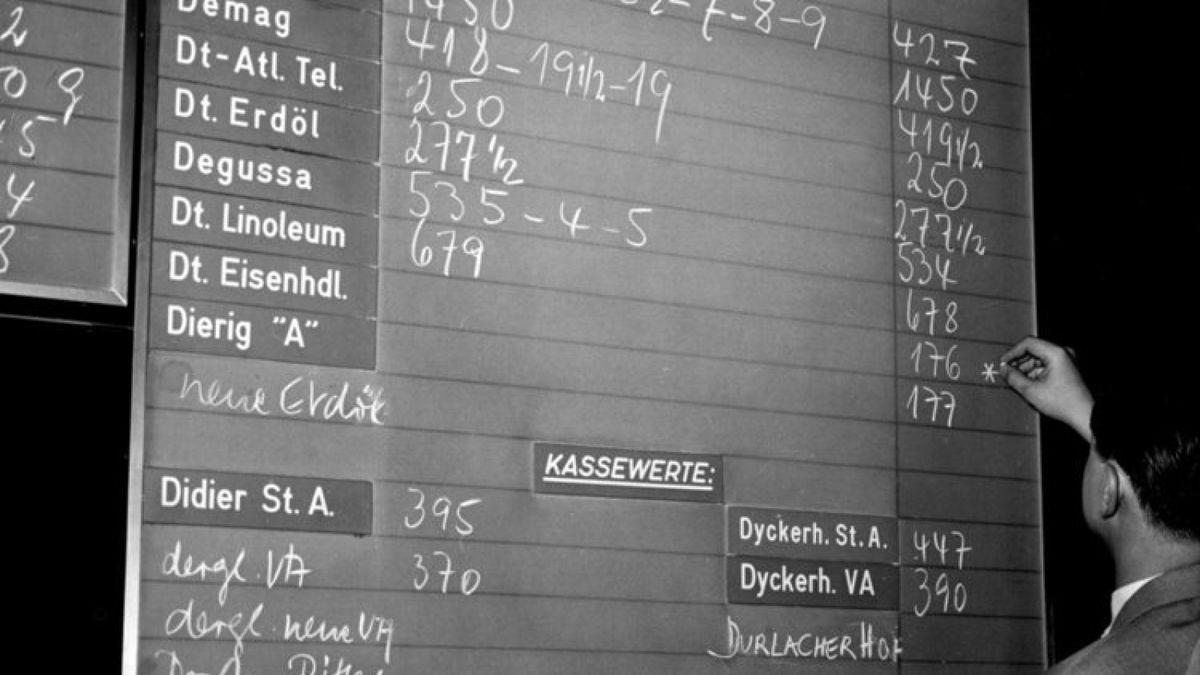 2
0 9
15
4
8
-7-8-9 427
1450 1450
Demag 418-19 1/2-19 419 1/2
Dt-Atl. Tel. 250 250
Dt. Erdöl 277 1/2 277 1/2
Degussa 535-4-5 534
Dt. Linoleum 679 678
Dt. Eisenhdl. 176 *
Dierig "A" 177
neue Erdöl
KASSEWERTE:
Didier St. A. 395 Dyckerh. St. A. 447
dergl. VA 370 Dyckerh. VA 390
dergl. neue VA DURLACHER HOF